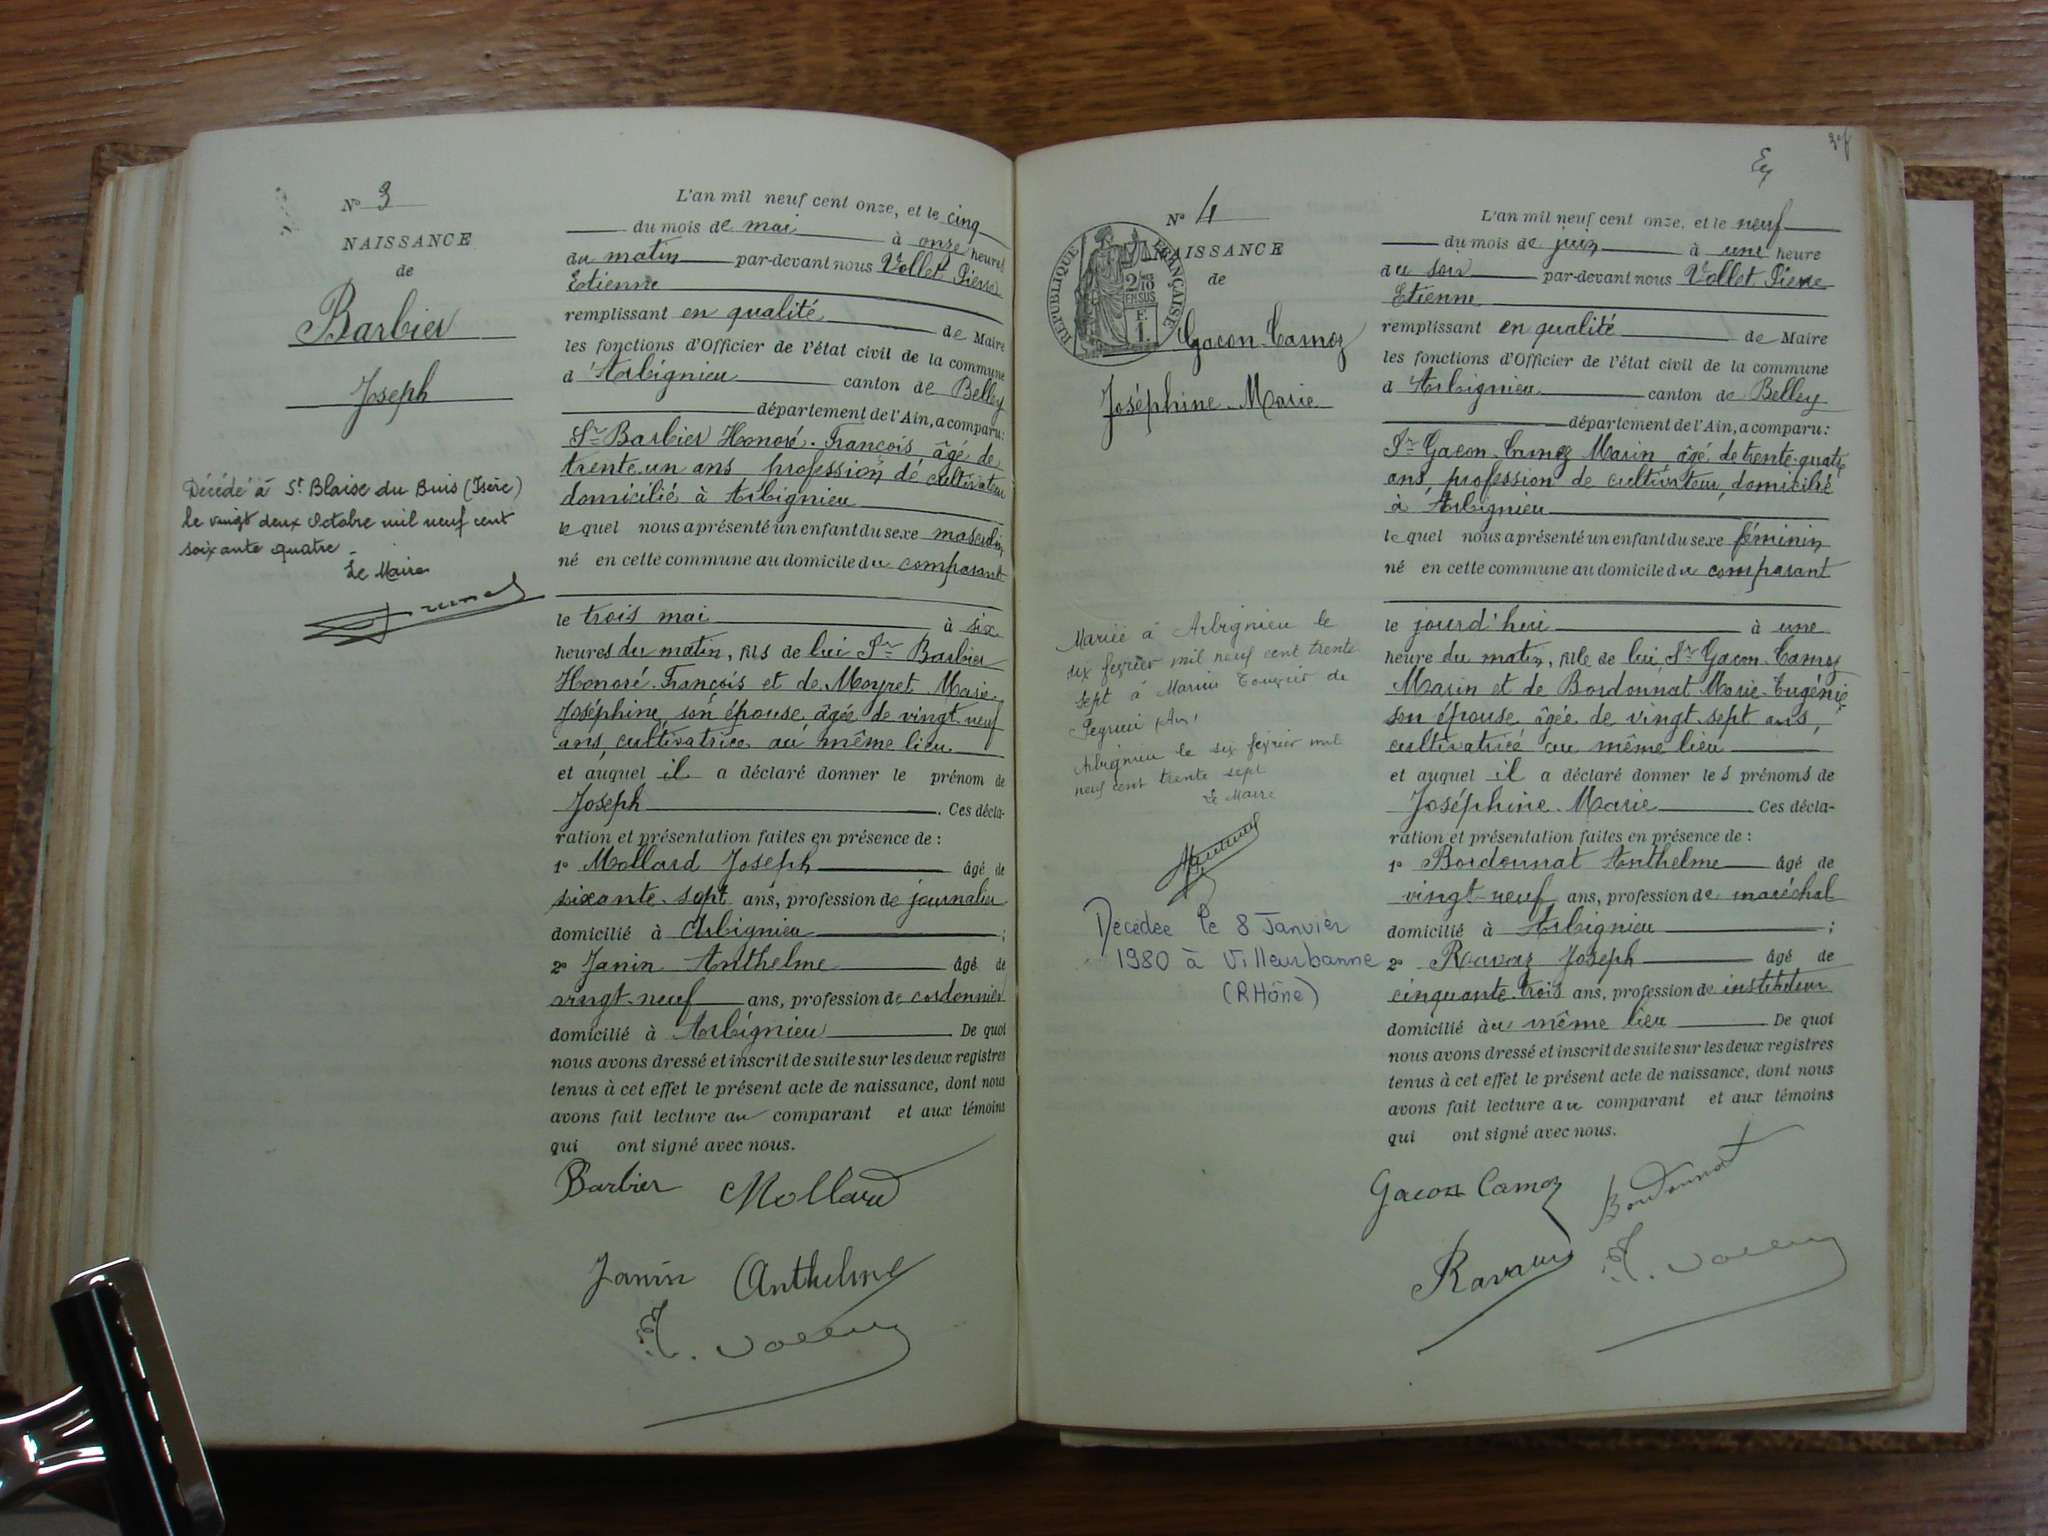 N° 3
NAISSANCE
de
Barbier
Joseph
Décédé à St Blaise du Buis (Isère)
le vingt deux Octobre mil neuf cent
soixante quatre
Le Maire
L'an mil neuf cent onze, et le cinq
du mois de mai à onze heures
du matin par-devant nous Vollet Pierre
Etienne
remplissant en qualité de Maire
les fonctions d'Officier de l'état civil de la commune
d'Arbignieu canton de Belley
département de l'Ain, a comparu:
Sr Barbier Honoré-François âgé de
trente-un ans, profession de cultivateur
domicilié à Arbignieu
lequel nous a présenté un enfant du sexe masculin
né en cette commune au domicile du comparant
le trois mai à six
heures du matin, fils de lui Sr Barbier
Honoré-François et de Moyret Marie-
Joséphine, son épouse âgée de vingt-neuf
ans, cultivatrice au même lieu
et auquel il a déclaré donner le prénom de
Joseph. Ces décla-
ration et présentation faites en présence de :
1° Mollard Joseph âgé de
sixante-sept ans, profession de journalier
domicilié à Arbignieu ;
2° Janin Anthelme âgé de
vingt-neuf ans, profession de cordonnier
domicilié à Arbignieu De quoi
nous avons dressé et inscrit de suite sur les deux registres
tenus à cet effet le présent acte de naissance, dont nous
avons fait lecture au comparant et aux témoins
qui ont signé avec nous.
Barbier Mollard
Janin Anthelme
N° 4
NAISSANCE
de
RÉPUBLIQUE FRANÇAISE
2/10
EN SUS
F.
1.
Gacon-Camoz
Joséphine-Marie
Mariée à Arbignieu le
six février mil neuf cent trente
sept à Marius de
Peyrieu (Ain)
Arbignieu le six février mil
neuf cent trente sept
Le Maire
Décédée le 8 Janvier
1980 à Villeurbanne
(RHône)
L'an mil neuf cent onze, et le neuf
du mois de juin à une heure
du soir par-devant nous Vollet Pierre
Etienne
remplissant en qualité de Maire
les fonctions d'Officier de l'état civil de la commune
d'Arbignieu canton de Belley
département de l'Ain, a comparu:
Sr Gacon-Camoz Marin âgé de trente-quatre
ans, profession de cultivateur, domicilié
à Arbignieu
lequel nous a présenté un enfant du sexe féminin
né en cette commune au domicile du comparant
le jourd'hui à une
heure du matin, fille de lui, Sr Gacon-Camoz
Marin et de Bordonnat Marie-Eugénie
son épouse âgée de vingt-sept ans,
cultivatrice au même lieu
et auquel il a déclaré donner les prénoms de
Joséphine-Marie Ces décla-
ration et présentation faites en présence de :
1° Bordonnat Anthelme âgé de
vingt-neuf ans, profession de maréchal
domicilié à Arbignieu ;
2° Joseph âgé de
cinquante-trois ans, profession de instituteur
domicilié au même lieu De quoi
nous avons dressé et inscrit de suite sur les deux registres
tenus à cet effet le présent acte de naissance, dont nous
avons fait lecture au comparant et aux témoins
qui ont signé avec nous.
Gacon Camoz Bordonnat